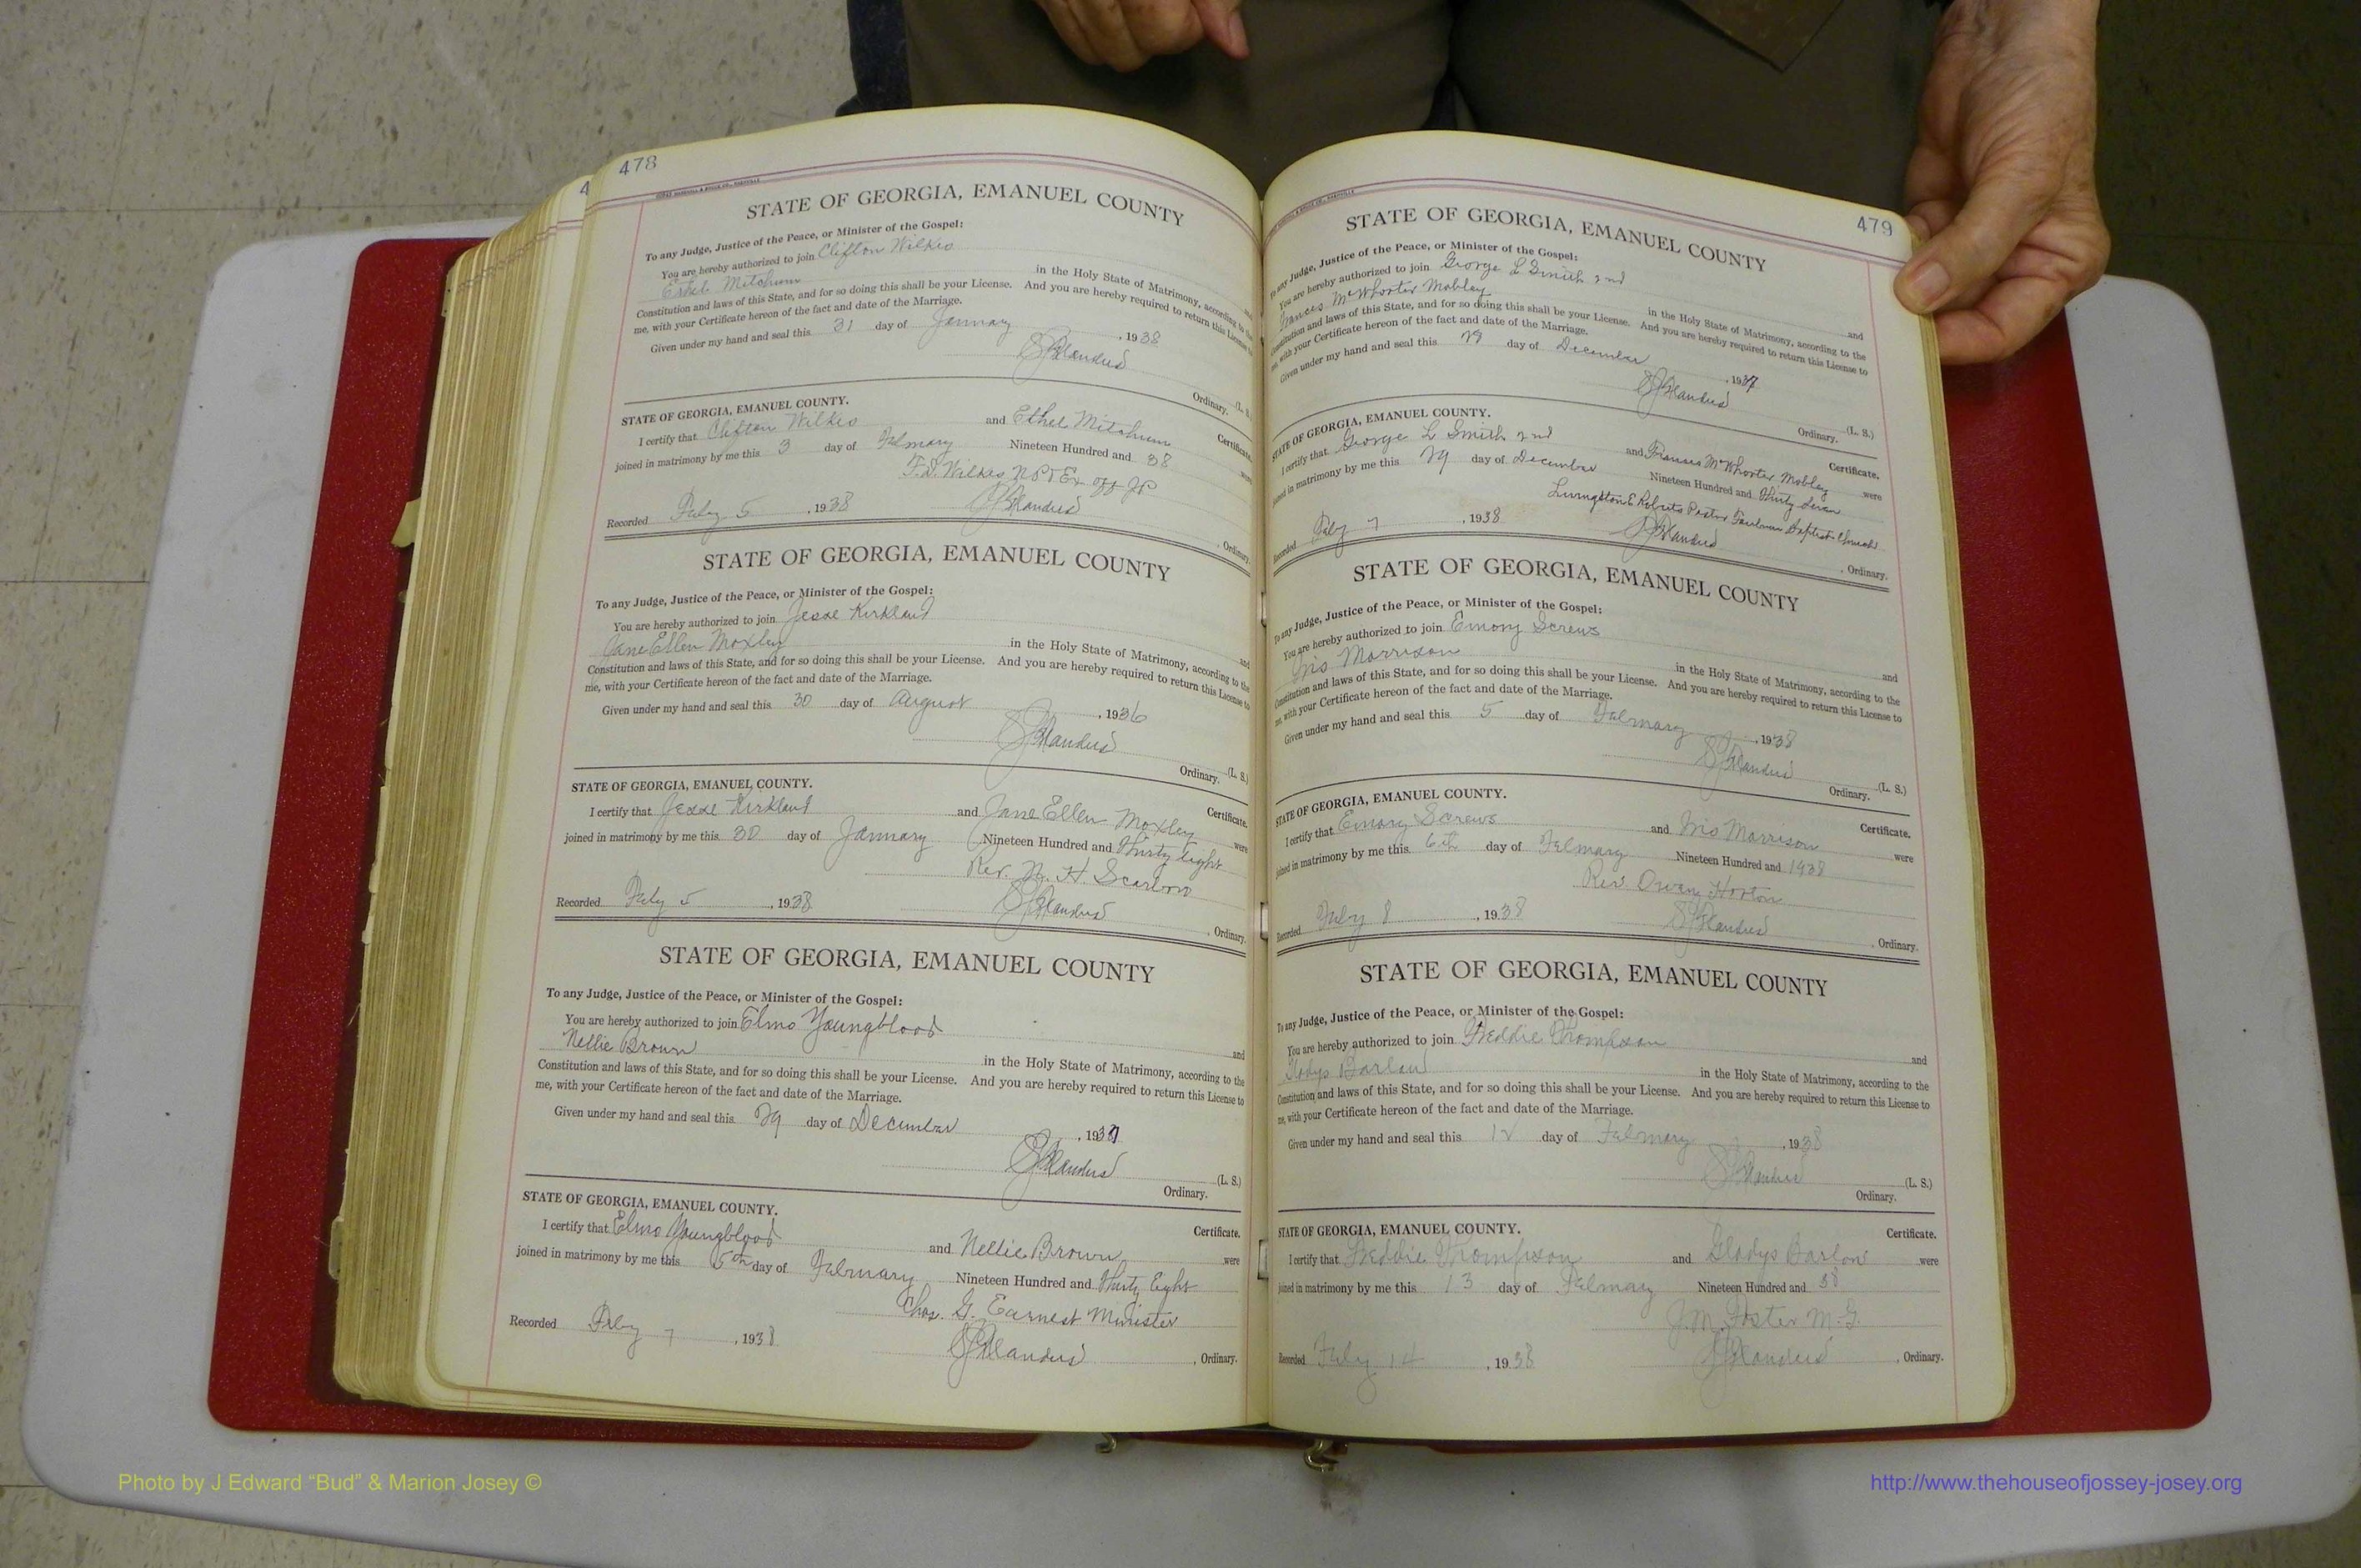 478
STATE OF GEORGIA, EMANUEL COUNTY
To any Judge, Justice of the Peace, or Minister of the Gospel:
You are hereby authorized to join Clifton Wilkes
and
Ethel Mitchum in the Holy State of Matrimony, according to the
Constitution and laws of this State, and for so doing this shall be your License. And you are hereby required to return this License to
me, with your Certificate hereon of the fact and date of the Marriage.
Given under my hand and seal this 31 day of January, 1938
Ordinary. (L. S.)
STATE OF GEORGIA, EMANUEL COUNTY.
Certificate.
I certify that Clifton Wilkes and Ethel Mitchum were
joined in matrimony by me this 3 day of Februrary Nineteen Hundred and 38
F. D. Wilkes N P & Ex off JP
Recorded Feby 5, 1938
, Ordinary.
STATE OF GEORGIA, EMANUEL COUNTY
To any Judge, Justice of the Peace, or Minister of the Gospel:
You are hereby authorized to join Jesse Kirkland
and
Jane Ellen Moxley in the Holy State of Matrimony, according to the
Constitution and laws of this State, and for so doing this shall be your License. And you are hereby required to return this License to
me, with your Certificate hereon of the fact and date of the Marriage.
Given under my hand and seal this 30 day of August, 1936
(L. S.)
Ordinary.
STATE OF GEORGIA, EMANUEL COUNTY.
Certificate.
I certify that Jesse Kirkland and Jane Ellen Moxley were
joined in matrimony by me this 30 day of January Nineteen Hundred and Thirty Eight
Rev. N. H. Scarboro
Recorded Feby 5, 1938
, Ordinary.
STATE OF GEORGIA, EMANUEL COUNTY
To any Judge, Justice of the Peace, or Minister of the Gospel:
You are hereby authorized to join Elmo Youngblood
and
Nellie Brown in the Holy State of Matrimony, according to the
Constitution and laws of this State, and for so doing this shall be your License. And you are hereby required to return this License to
me, with your Certificate hereon of the fact and date of the Marriage.
Given under my hand and seal this 29 day of December, 1937
(L. S.)
Ordinary.
STATE OF GEORGIA, EMANUEL COUNTY.
Certificate.
I certify that Elmo Youngblood and Nellie Brown were
joined in matrimony by me this 5th day of February Nineteen Hundred and Thirty Eight
Chas. G. Earnest Minister
Recorded Feby 7, 1938
, Ordinary.
479
STATE OF GEORGIA, EMANUEL COUNTY
To any Judge, Justice of the Peace, or Minister of the Gospel:
You are hereby authorized to join George L Smith 2nd
and
Frances McWhorter Mobley in the Holy State of Matrimony, according to the
Constitution and laws of this State, and for so doing this shall be your License. And you are hereby required to return this License to
me, with your Certificate hereon of the fact and date of the Marriage.
Given under my hand and seal this 29 day of December, 1937
(L. S.)
Ordinary.
STATE OF GEORGIA, EMANUEL COUNTY.
Certificate.
I certify that George L Smith 2nd and Frances McWhorter Mobley were
joined in matrimony by me this 29 day of December Nineteen Hundred and Thirty Seven
Livingston E Roberts Pastor Fairburn Baptist Church
Recorded Feby 7, 1938
, Ordinary.
STATE OF GEORGIA, EMANUEL COUNTY
To any Judge, Justice of the Peace, or Minister of the Gospel:
You are hereby authorized to join Emory Screws
and
Iris Morrison in the Holy State of Matrimony, according to the
Constitution and laws of this State, and for so doing this shall be your License. And you are hereby required to return this License to
me, with your Certificate hereon of the fact and date of the Marriage.
Given under my hand and seal this 5 day of February, 1938
(L. S.)
Ordinary.
STATE OF GEORGIA, EMANUEL COUNTY.
Certificate.
I certify that Emory Screws and Iris Morrison were
joined in matrimony by me this 6th day of February Nineteen Hundred and 1938
Rev. Owen Horton
Recorded Feby 8, 1938
, Ordinary.
STATE OF GEORGIA, EMANUEL COUNTY
To any Judge, Justice of the Peace, or Minister of the Gospel:
You are hereby authorized to join Freddie Thompson
and
Gladys Barlow in the Holy State of Matrimony, according to the
Constitution and laws of this State, and for so doing this shall be your License. And you are hereby required to return this License to
me, with your Certificate hereon of the fact and date of the Marriage.
Given under my hand and seal this 12 day of February, 1938
(L. S.)
Ordinary.
STATE OF GEORGIA, EMANUEL COUNTY.
Certificate.
I certify that Freddie Thompson and Gladys Barlow were
joined in matrimony by me this 13 day of February Nineteen Hundred and 38
J. M. Foster M. G.
Recorded Feby 14, 1938
, Ordinary.
Photo by J Edward “Bud” & Marion Josey ©
http://www.thehouseofjossey-josey.org